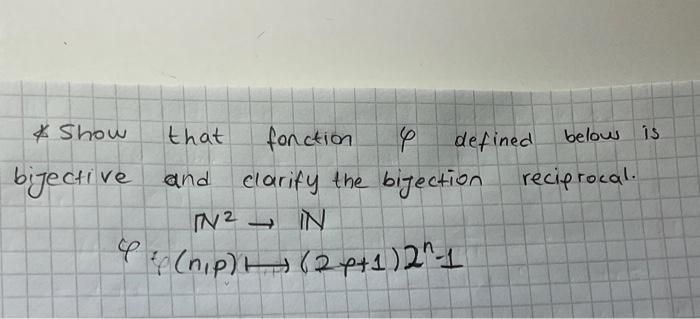 * Show that fonction φ defined below is
bijective and clarify the bijection reciprocal.
ℕ² → ℕ
φ : (n,p) ↦ (2p+1)2ⁿ-1